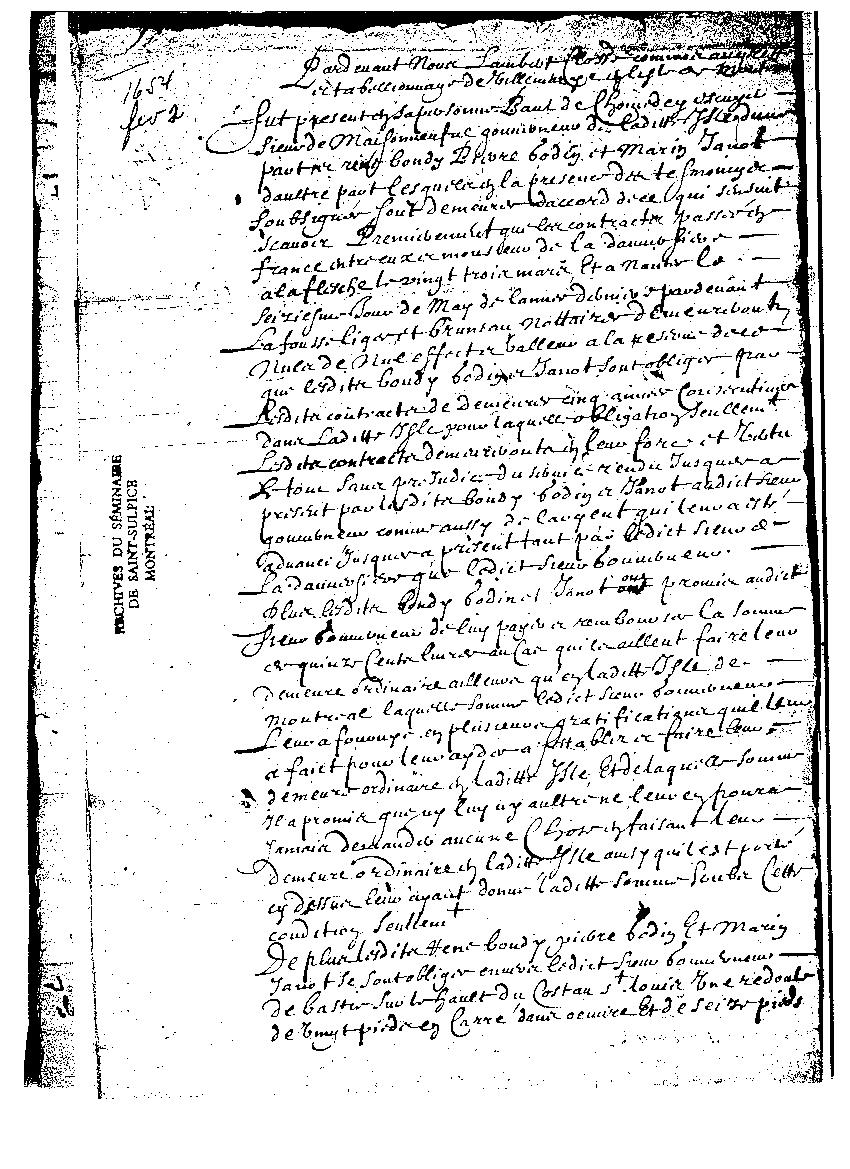 1654
fev 2
ARCHIVES DU SÉMINAIRE
DE SAINT-SULPICE
MONTRÉAL
Pardevant Nous Lambert Closse commis au greffe
et tabellionnage de villemarye en lysle de montreal
fut present en sa personne Paul de Chomedey escuyer
sieur de Maisonneufve gouverneur de laditte Isle dune
part et rene bondy Pierre bodin et Marin Janot
daultre part lesquels en la presence des tesmoings
soubsignes sont demeures daccord de ce qui sensuit
scavoir Premierement que les contracts passes en
france entre eux et monsieur de la dauversiere
a la flesche le vingt trois mars Et a Nantes le
seiziesme Jour de May de lannee derniere pardevant
La fousse liger et bruneau Nottaires demeureront
Nuls de Nul effect et valleur a la reserve de ce
que lesdits bondy bodin et Janot sont obliges par
Lesdits contracts de demeurer cinq annees consecutives
dans Laditte Isle pour laquelle obligation seullemt
Lesdits contracts demeureront en leur force et vertu
Le tout sans prejudice du service rendu Jusques a
present par lesdits bondy bodin et Janot audict sieur
gouverneur comme aussy de largent qui leur a esté
advancé Jusques a present tant par ledict sieur de
La dauversiere que ledict sieur Gouverneur.
Plus lesdits bondy bodin et Janot ont promis audict
sieur Gouverneur de luy payer et rembourser la somme
de quinze Cents livres au Cas quils aillent faire leur
demeure ordinaire ailleurs qu'en laditte Isle de
Montreal laquelle somme ledict sieur Gouverneur
Leur a fournye en plusieurs gratifications quil leur
a faict pour leur ayder a sestablir et faire leur
demeure ordinaire en laditte Isle Et de laquelle somme
Il a promis que ny luy ny aultre ne leur en pourra
Jamais demander aucune Chose en faisant leur
demeure ordinaire en laditte Isle ainsy quil est porté
cy dessus leur ayant donné laditte somme soubs Cette
condition seullemt
De plus lesdits Rene bondy pierre bodin Et Marin
Janot se sont obliges envers ledict sieur Gouverneur
de bastir sur le hault du Costau st louis Une redoute
de vingt pieds en Carré dans oeuvre Et de seize pieds